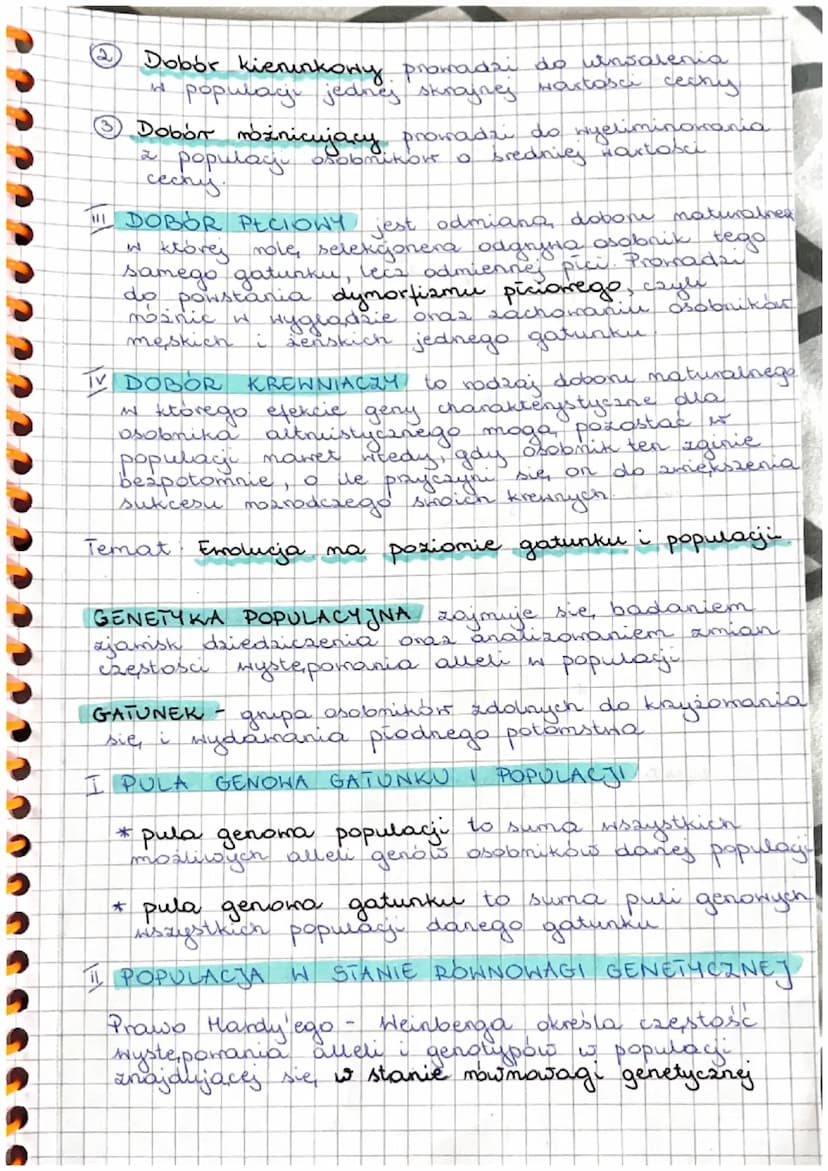 2 Dobór kierunkowy prowadzi do utrwalenia
w populacji jednej skrajnej wartości cechy
3 Dobór różnicujący prowadzi do wyeliminowania
z populacji osobników o średniej wartości
cechy.
III DOBÓR PŁCIOWY jest odmianą doboru naturalnej
w której rolę selekcjonera odgrywa osobnik tego
samego gatunku, lecz odmiennej płci. Prowadzi
do powstania dymorfizmu płciowego, czyli
różnic w wyglądzie oraz zachowaniu osobników
męskich i żeńskich jednego gatunku.
IV DOBÓR KREWNIACZY to rodzaj doboru naturalnego
w którego efekcie geny charakterystyczne dla
osobnika altruistycznego mogą pozostać w
populacji nawet wtedy, gdy osobnik ten zginie
bezpotomnie, o ile przyczyni się on do zwiększenia
sukcesu rozrodczego swoich krewnych.
Temat: Ewolucja na poziomie gatunku i populacji
GENETYKA POPULACYJNA zajmuje się badaniem
zjawisk dziedziczenia oraz analizowaniem zmian
częstości występowania alleli w populacji
GATUNEK - grupa osobników zdolnych do krzyżowania
się i wydawania płodnego potomstwa
I PULA GENOWA GATUNKU I POPULACJI
* pula genowa populacji to suma wszystkich
możliwych alleli genów osobników danej populacji
* pula genowa gatunku to suma puli genowych
wszystkich populacji danego gatunku
II POPULACJA W STANIE RÓWNOWAGI GENETYCZNEJ
Prawo Hardy'ego - Weinberga określa częstość
występowania alleli i genotypów w populacji
znajdującej się w stanie równowagi genetycznej